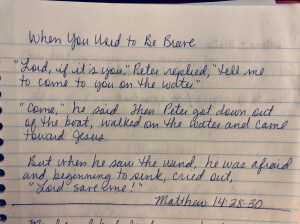 When You Used to Be Brave
"Lord, if it's you," Peter replied, "tell me
to come to you on the water."
"Come," he said. Then Peter got down out
of the boat, walked on the water and came
toward Jesus.
But when he saw the wind, he was afraid
and, beginning to sink, cried out,
"Lord save me!"
Matthew 14:28-30